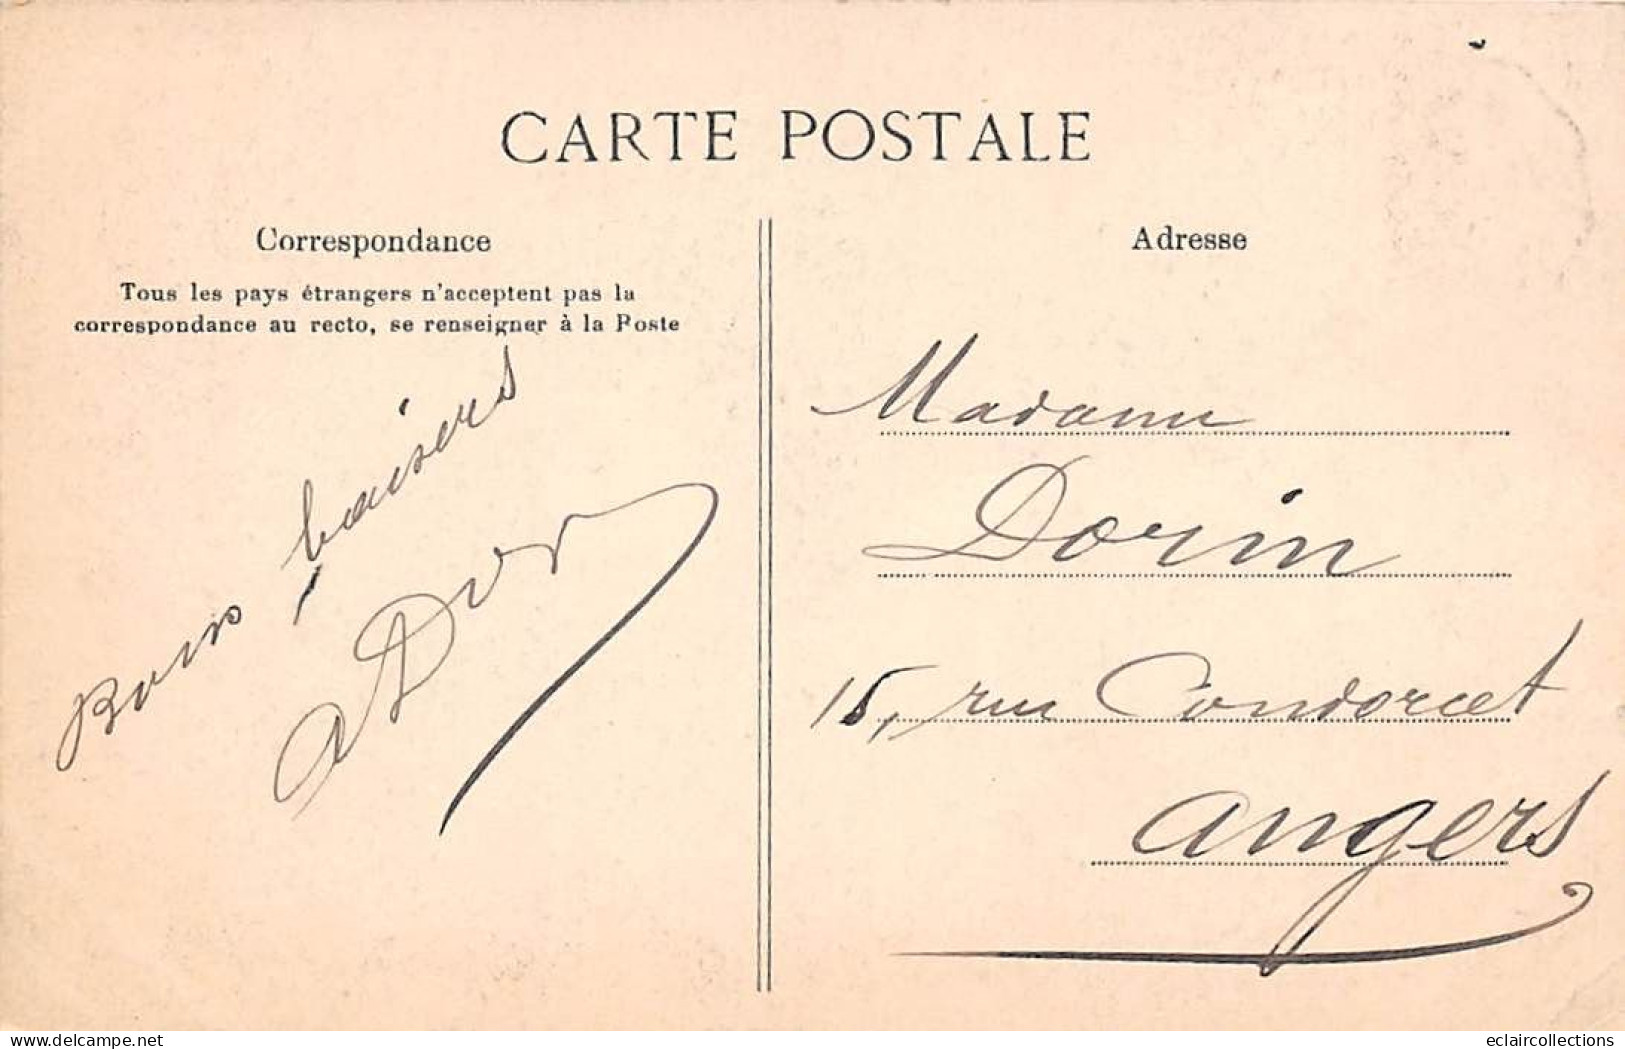 CARTE POSTALE
Correspondance
Tous les pays étrangers n'acceptent pas la
correspondance au recto, se renseigner à la Poste
Bons baisers
Adresse
Madame
Dorin
15, rue Condorcet
Angers
delcampe.net
eclaircollections